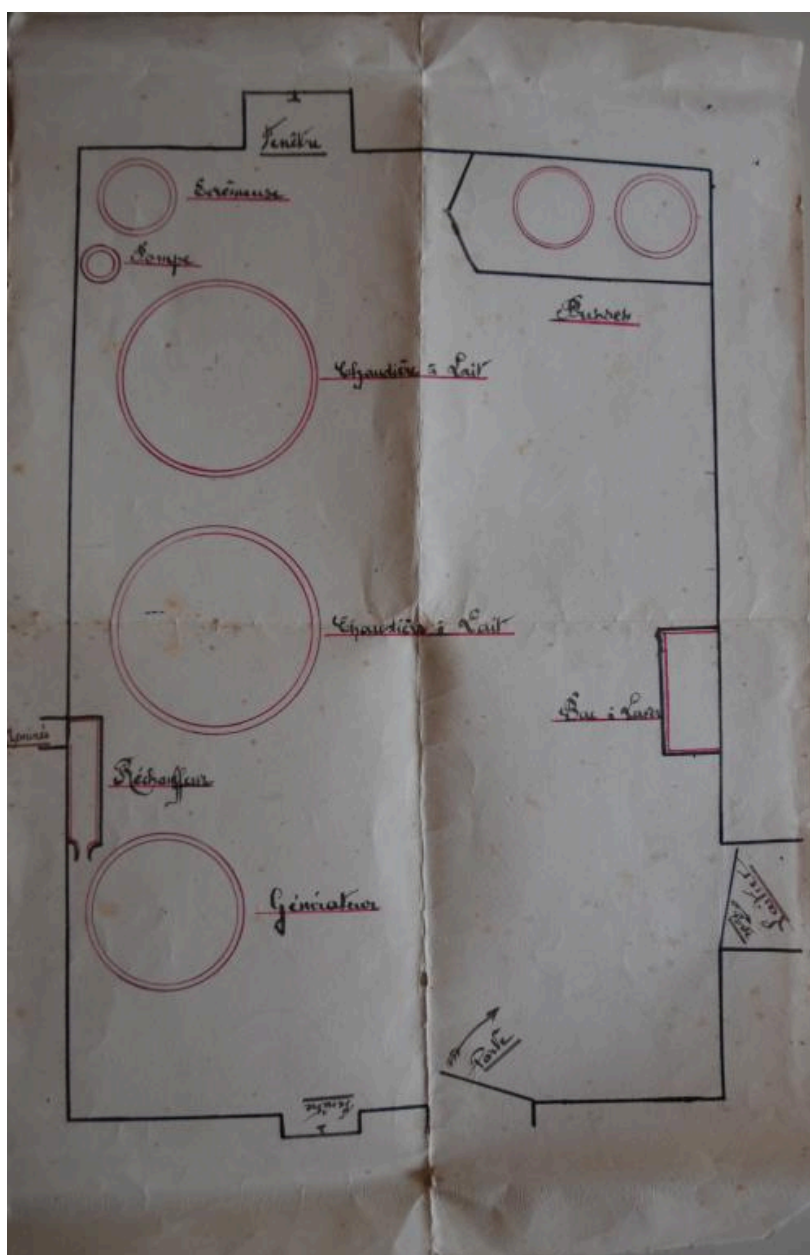 Fenêtre
Ecrémeuse
Pompe
Chaudière à Lait
Chaudière à Lait
Bac à Laver
Réchauffeur
Générateur
Laitier
Porte
Fenêtre